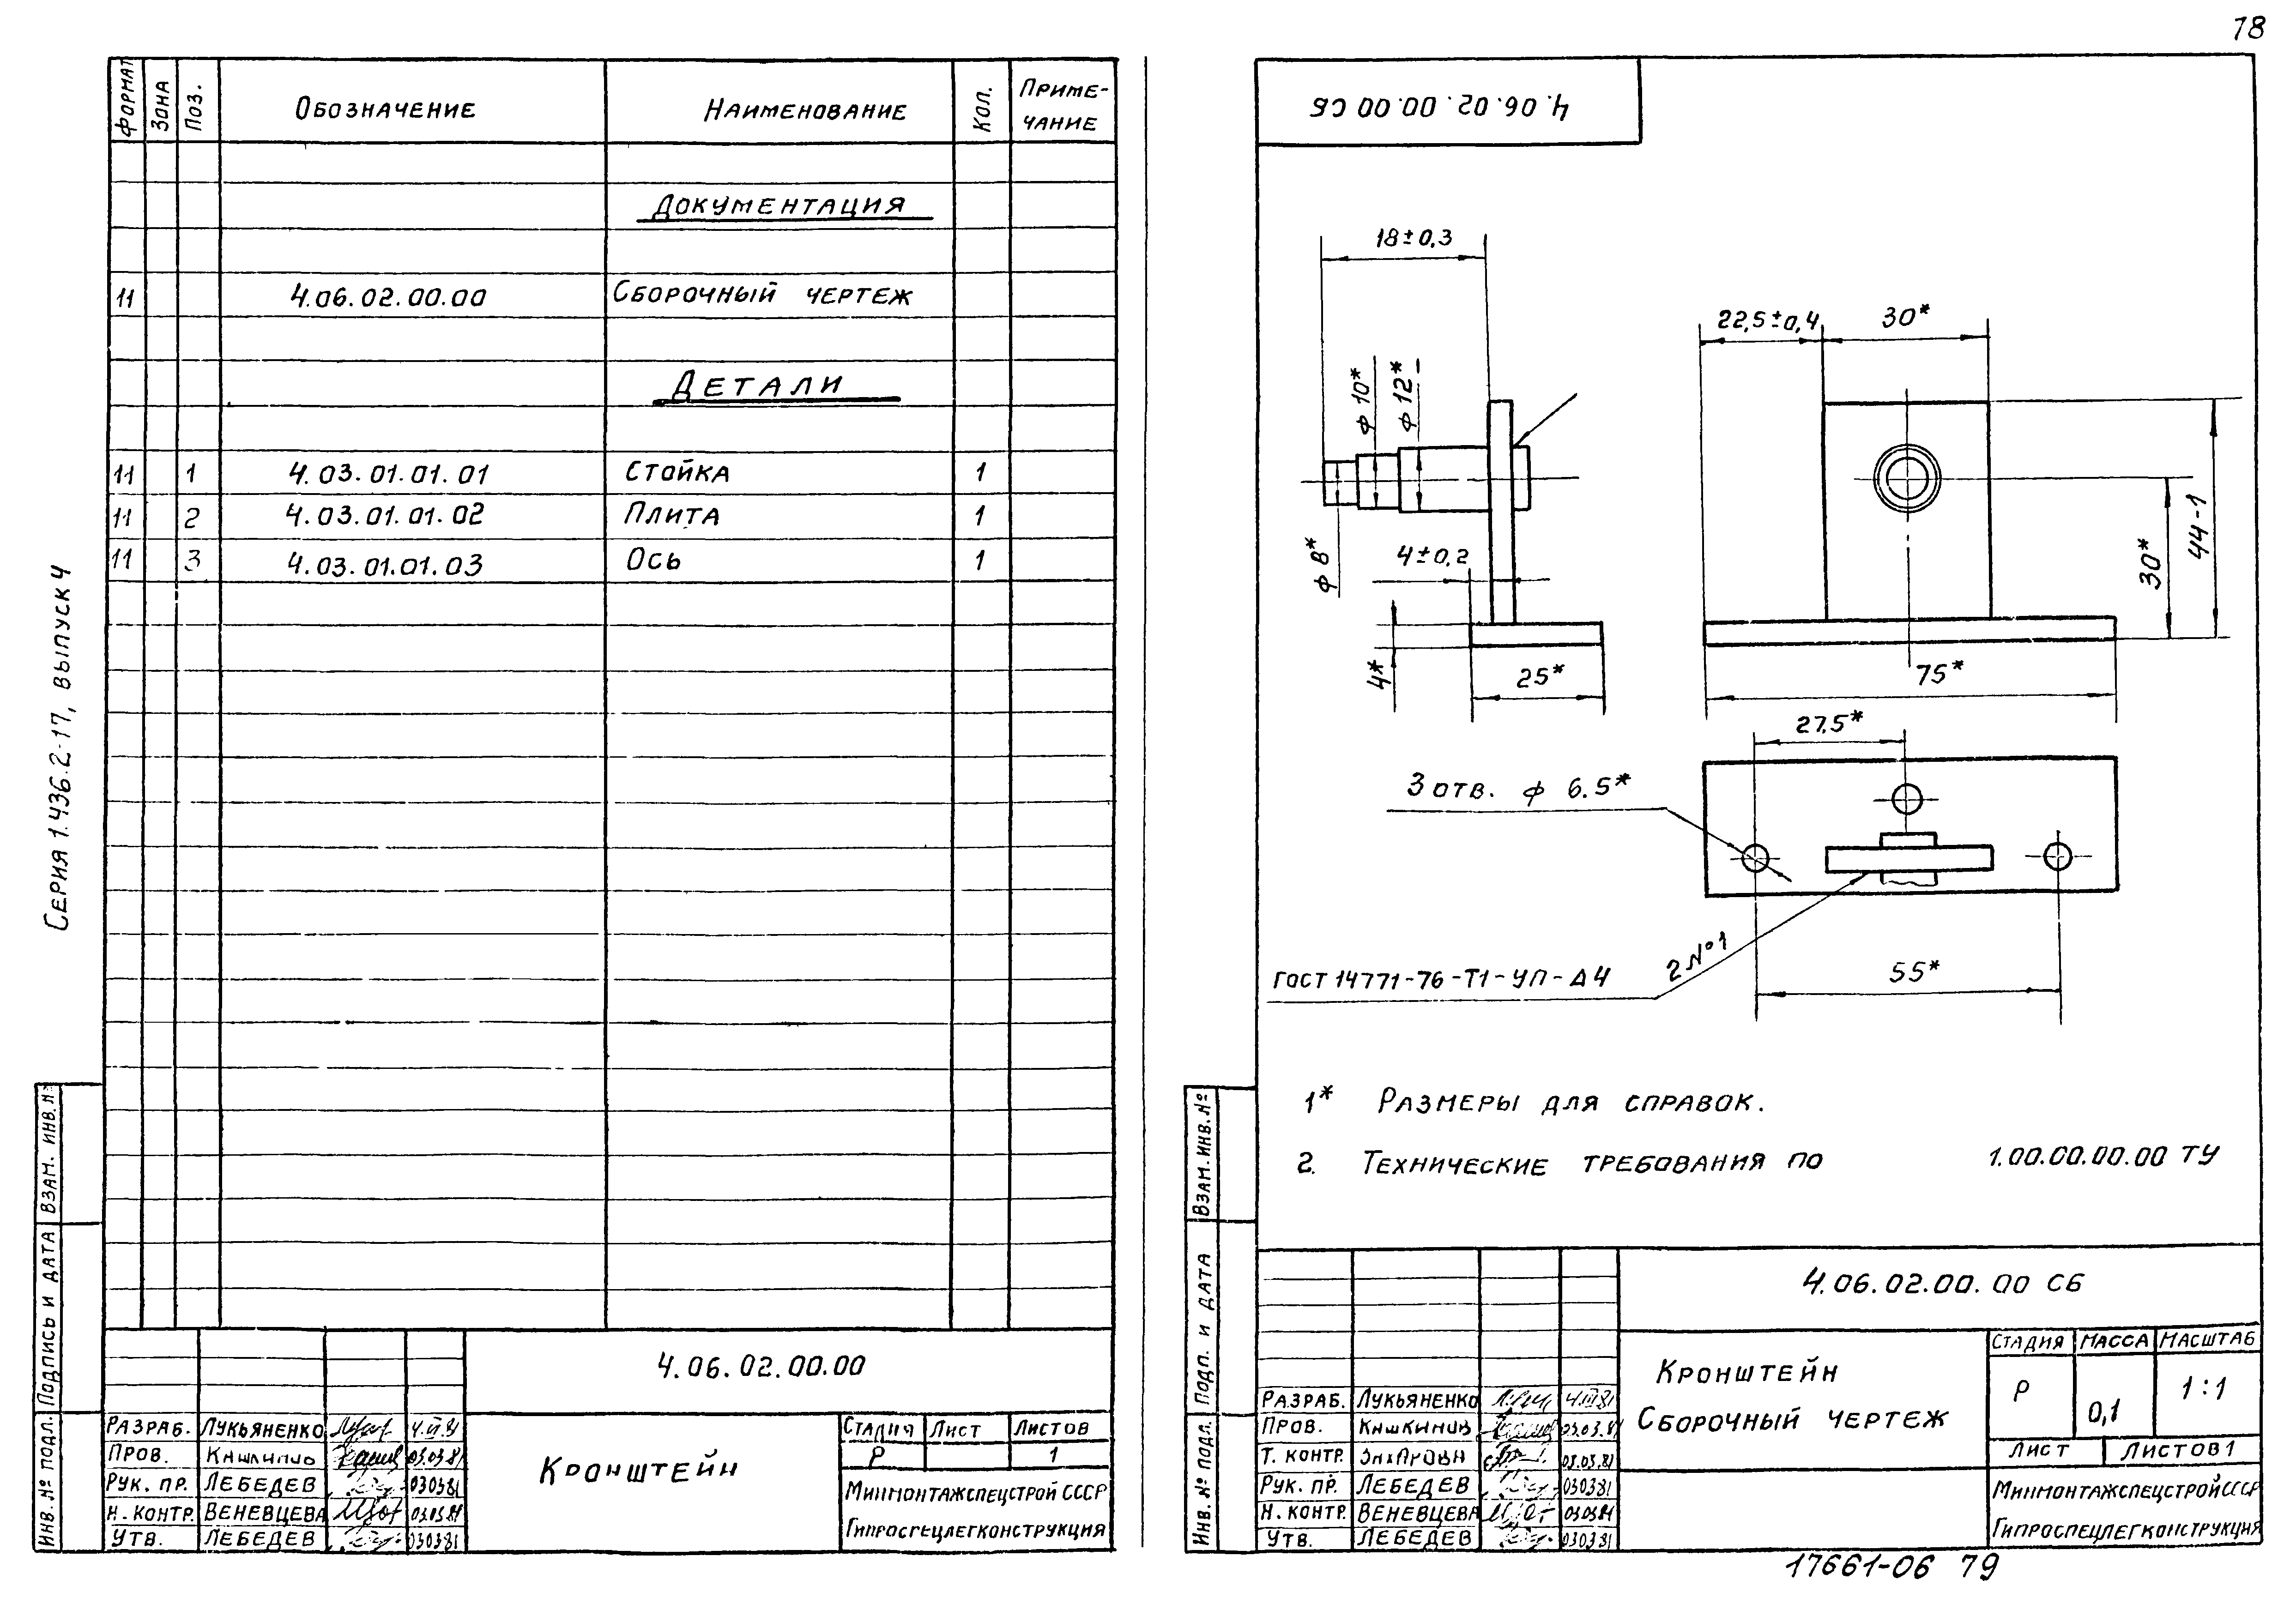 78
Формат Зона Поз. Обозначение Наименование Кол. Приме-
чание
Документация
11 4.06.02.00.00 Сборочный чертеж
Детали
11 1 4.03.01.01.01 Стойка 1
11 2 4.03.01.01.02 Плита 1
11 3 4.03.01.01.03 Ось 1
Серия 1.436.2-17, выпуск 4
Взам. инв. №
Подпись и дата
Инв. № подл.
4.06.02.00.00
Разраб. Лукьяненко
Пров. Кишкинив 03.03.81
Рук. пр. Лебедев 030381
Н. контр. Веневцева 03.03.81
Утв. Лебедев 030381
Кронштейн
Стадия Лист Листов
Р 1
Минмонтажспецстрой СССР
Гипроспецлегконструкция
4.06.02.00.00 СБ
18±0,3
ф 10*
ф 12*
ф 8*
4±0,2
4*
25*
22,5±0,4
30*
30*
44-1
75*
27,5*
3 отв. ф 6.5*
ГОСТ 14771-76-Т1-УП-Δ4
2 №1
55*
1* Размеры для справок.
2. Технические требования по 1.00.00.00.00 ТУ
Взам. инв. №
Подп. и дата
Инв. № подл.
4.06.02.00.00 СБ
Разраб. Лукьяненко 4.III.81
Пров. Кишкинив 03.03.81
Т. контр. 03.03.81
Рук. пр. Лебедев 030381
Н. контр. Веневцева 030381
Утв. Лебедев 030381
Кронштейн
Сборочный чертеж
Стадия Масса Масштаб
Р 0,1 1:1
Лист Листов 1
Минмонтажспецстрой СССР
Гипроспецлегконструкция
17661-06 79